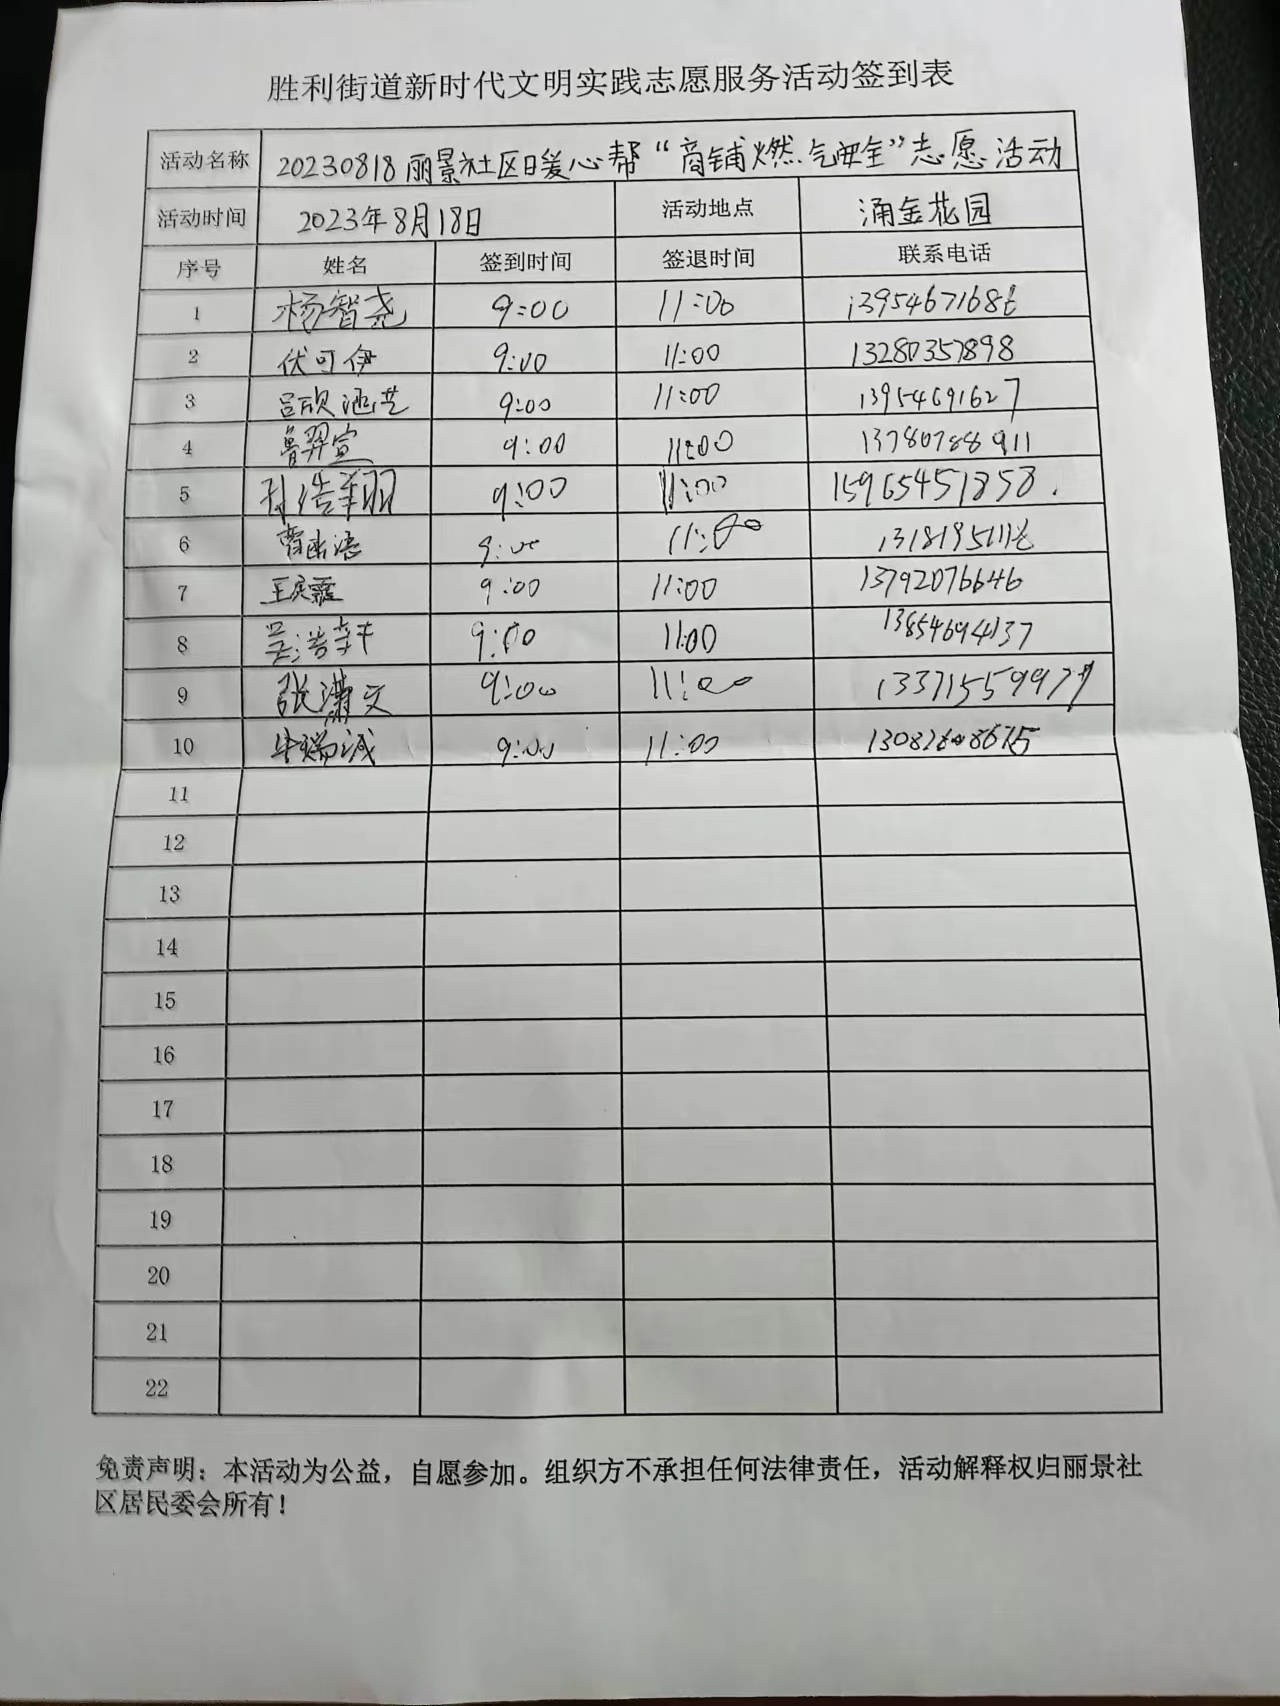 胜利街道新时代文明实践志愿服务活动签到表
活动名称 20230818丽景社区日暖心帮“商铺燃气安全”志愿活动
活动时间 2023年8月18日 活动地点 涌金花园
序号 姓名 签到时间 签退时间 联系电话
1 杨智尧 9:00 11:00 13954671686
2 伏可伊 9:00 11:00 13280357898
3 吕欣 9:00 11:00 13954691627
4 鲁羿宣 9:00 11:00 13780788911
5 孙浩 9:00 11:00 15965451858
6 9:00 11:00
7 9:00 11:00 13792076646
8 吴浩 9:00 11:00 13854694137
9 张潇文 9:00 11:00
10 牛瑞诚 9:00 11:00
11
12
13
14
15
16
17
18
19
20
21
22
免责声明：本活动为公益，自愿参加。组织方不承担任何法律责任，活动解释权归丽景社
区居民委会所有！